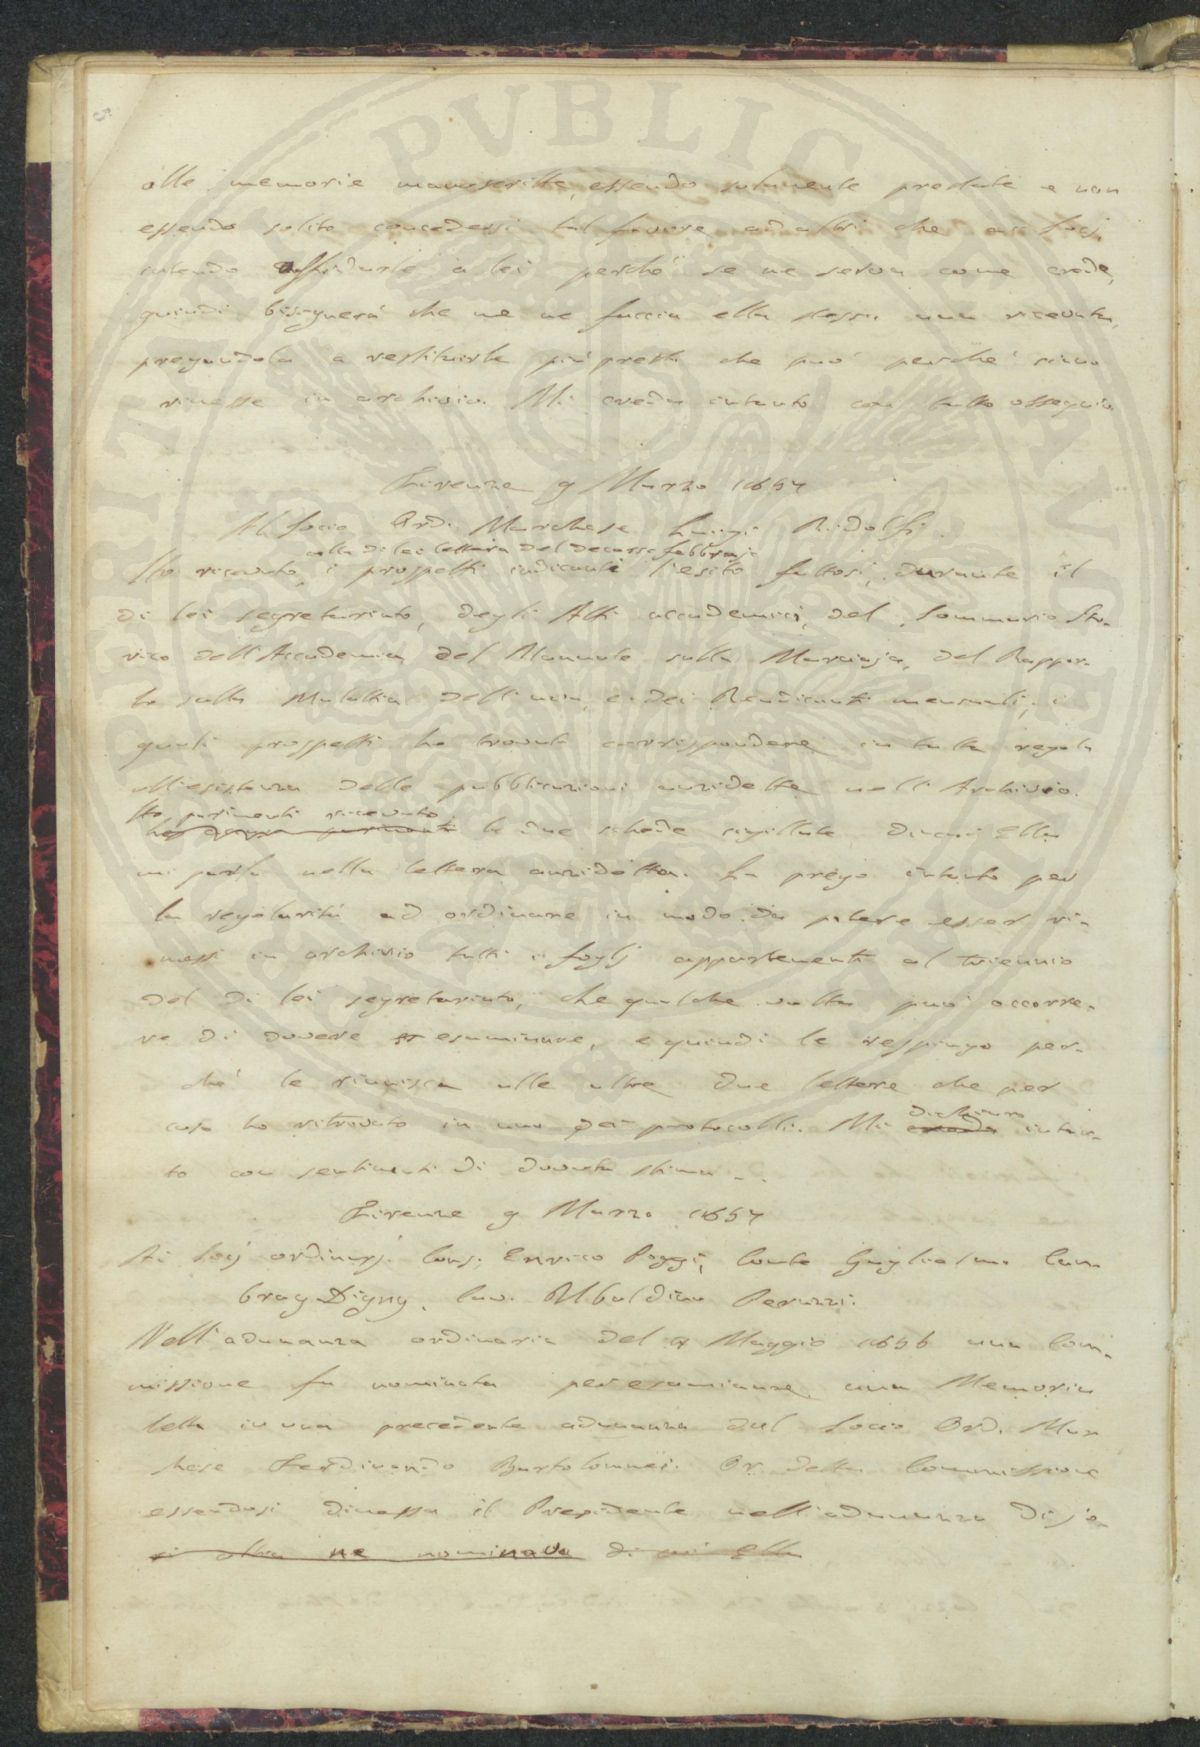 alle memorie manoscritte, essendo solamente prestate e non
essendo solito concedersi tal favore ad altri che ai Socj,
intendo affidarle a lei perchè se ne serva come crede,
quindi bisognerà che me ne faccia ella stessa una ricevuta,
pregandola a restituirle più presto che può perchè siano
rimesse in archivio. Mi creda intanto con tutto ossequio
Firenze 9 Marzo 1857
Al Socio Ord. Marchese Luigi Ridolfi.
colla di lei lettera del decorso febbrajo
Ho ricevuto i prospetti indicanti l'esito fattosi, durante il
di lei segretariato, degli Atti accademici, del Sommario Sto-
rico dell'Accademia, del Manuale sulla Marciaja, del Rappor-
to sulla Malattia dell'uva, e dei Rendiconti mensuali; i
quali prospetti ho trovato corrispondere in tutta regola
all'esistenza delle pubblicazioni anzidette nell'Archivio.
Ho parimenti ricevuto
le due schede sigillate di cui Ella
mi parla nella lettera anzidetta. La prego intanto per
la regolarità ad ordinare in modo da potere esser ri-
messi in archivio tutti i foglj appartenenti al triennio
del di lei segretariato, che qualche volta può occorre-
re di dovere esaminare, e quindi le respingo per-
chè le riunisca alle altre due lettere che per
caso ho ritrovato in uno dei protocolli. Mi
dichiaro
creda intan-
to con sentimenti di dovuta stima...
Firenze 9 Marzo 1857
Ai Socj ordinarj. Cons. Enrico Poggi, Conte Guglielmo Cam
bray Digny, Cav. Ubaldino Peruzzi.
Nell'adunanza ordinaria del Maggio 1856 una Com-
missione fu nominata per esaminare una Memoria
letta in una precedente adunanza dal Socio Ord. Mar
chese Ferdinando Bartolommei. Or della Commissione
essendosi dimessa il Presidente nell'adunanza di je-
ri altra ne nominava di cui Ella